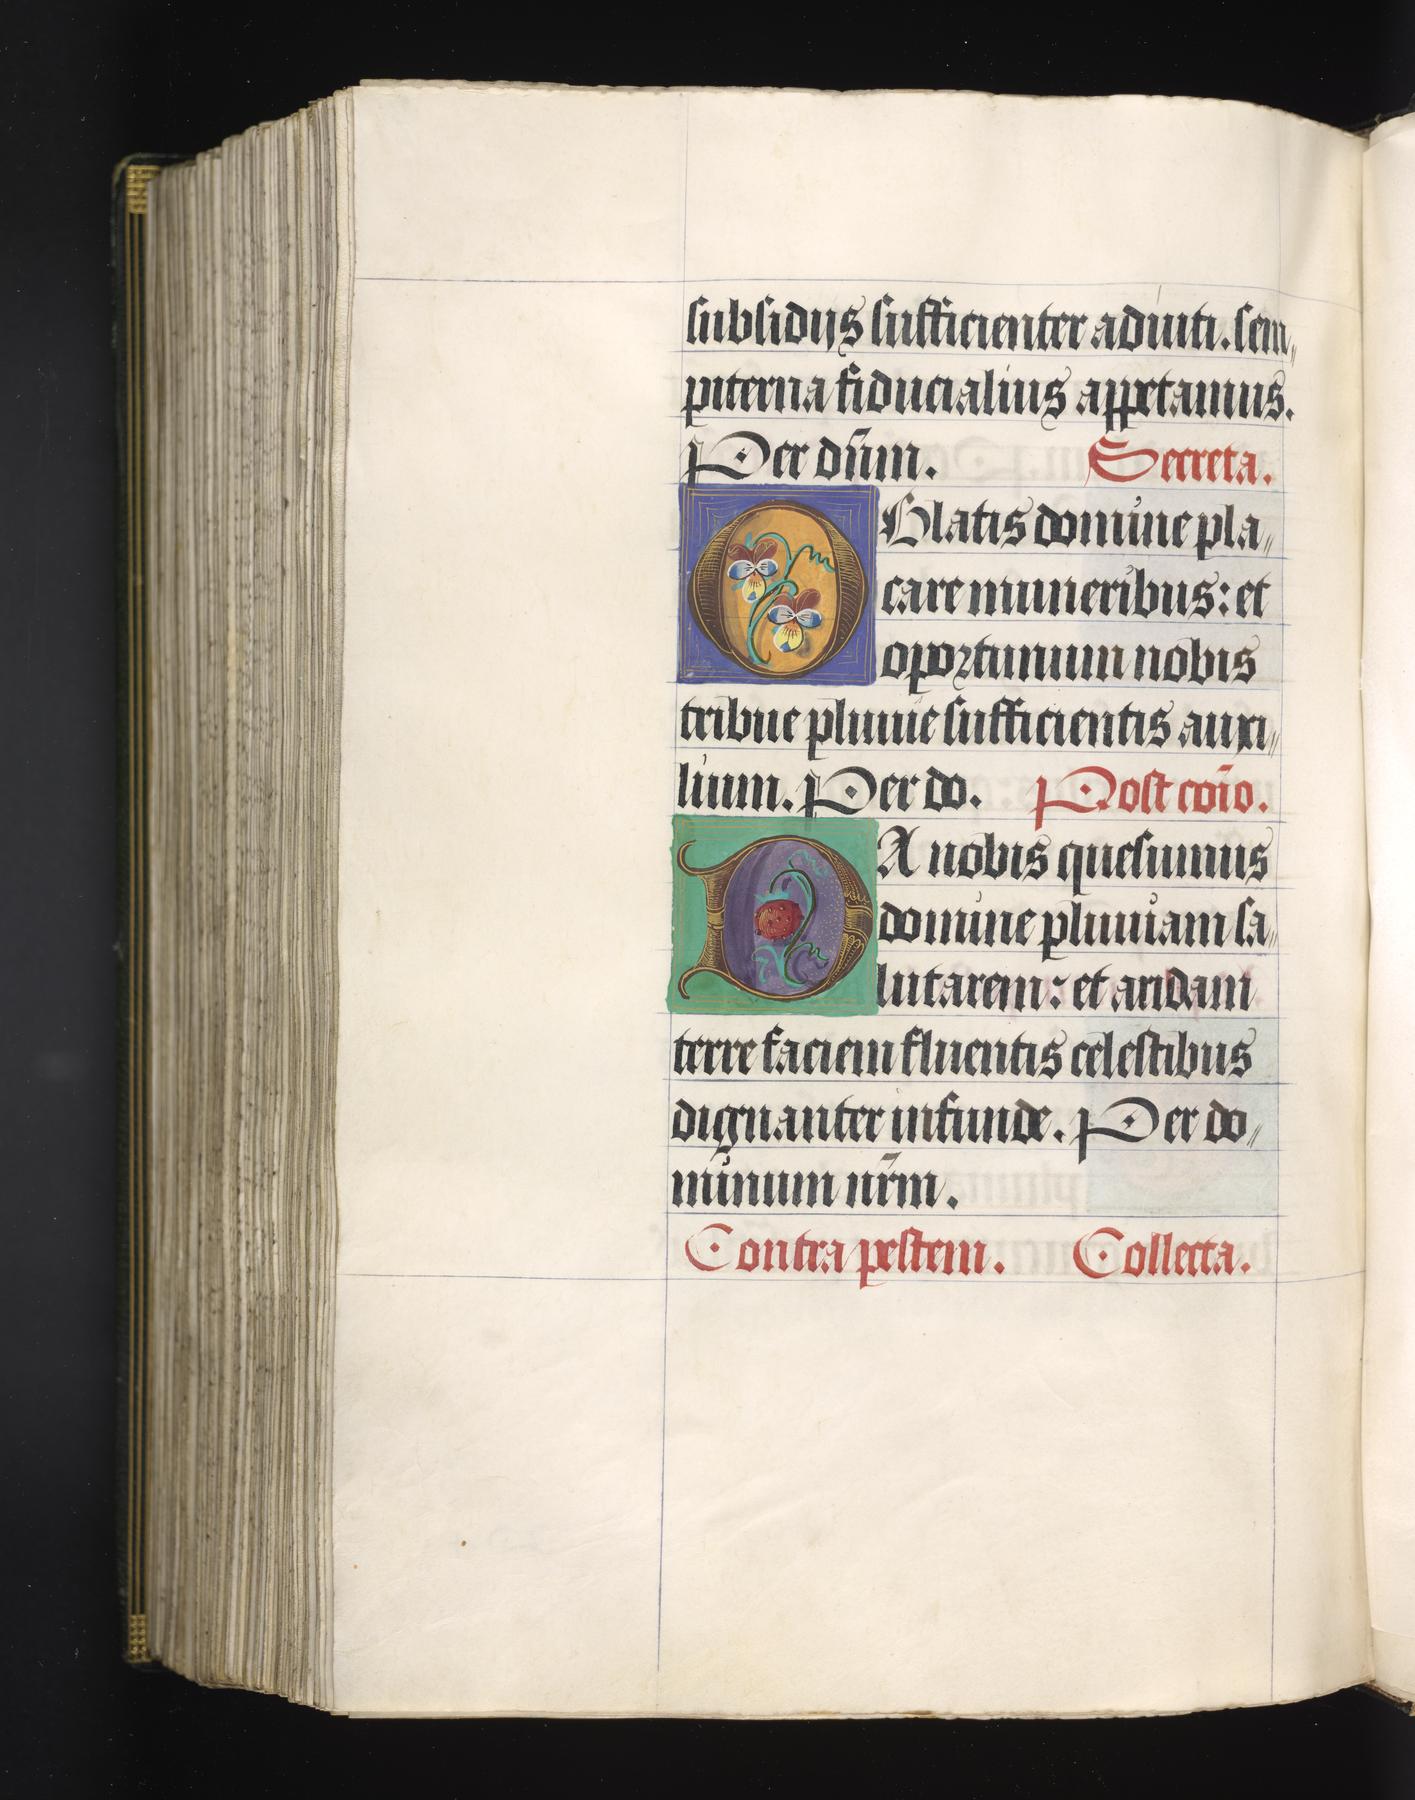 subsidijs sufficienter adiuti. sem„
piterna fiducialius appetamus.
Per dn̄m. Secreta.
OBlatis domine pla„
care muneribus: et
oportunum nobis
tribue pluuie sufficientis auxi„
lium. Per do. Post com̄o.
DA nobis quesumus
domine pluuiam sa„
lutarem: et aridam
terre faciem fluentis celestibus
dignanter infunde. Per do„
minum nr̄m.
Contra pestem. Collecta.